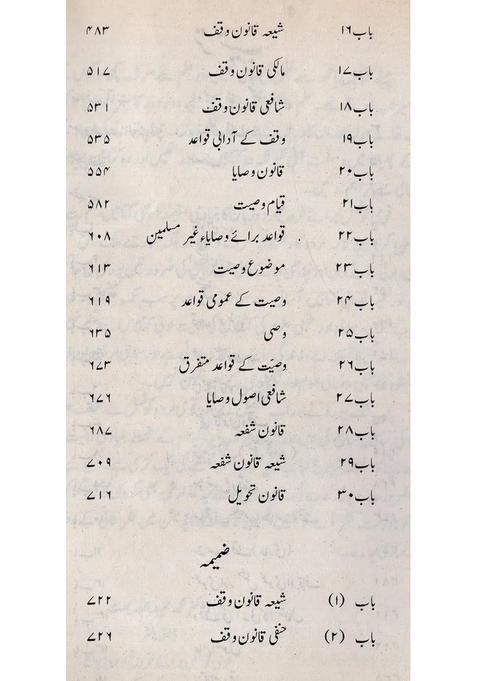 باب۱۶ شیعہ قانون وقف ۴۸۳
باب۱۷ مالکی قانون وقف ۵۱۷
باب۱۸ شافعی قانون وقف ۵۳۱
باب۱۹ وقف کے آدابی قواعد ۵۳۵
باب۲۰ قانون وصایا ۵۵۴
باب۲۱ قیام وصیت ۵۸۲
باب۲۲ قواعد برائے وصایاء غیر مسلمین ۶۰۸
باب۲۳ موضوع وصیت ۶۱۳
باب۲۴ وصیت کے عمومی قواعد ۶۱۹
باب۲۵ وصی ۶۳۵
باب۲۶ وصیت کے قواعد متفرق ۶۷۳
باب۲۷ شافعی اصول وصایا ۶۷۶
باب۲۸ قانون شفعہ ۶۸۷
باب۲۹ شیعہ قانون شفعہ ۷۰۹
باب۳۰ قانون تحویل ۷۱۶
ضمیمہ
باب (۱) شیعہ قانون وقف ۷۲۲
باب (۲) حنفی قانون وقف ۷۲۶